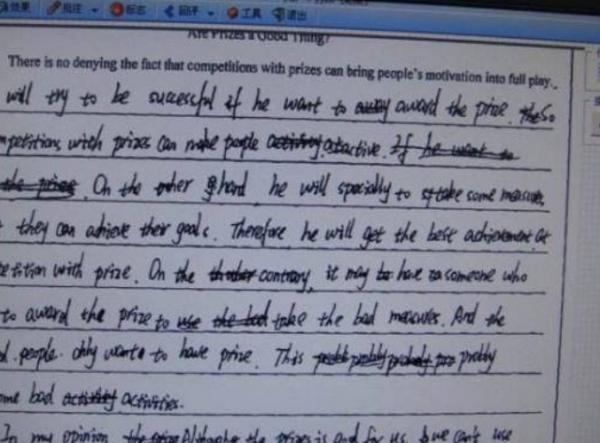 效果 批注 标志 回评 工具 退出
Are Prizes a Good Thing?
There is no denying the fact that competitions with prizes can bring people's motivation into full play.
will try to be successful if he want to away award the prize. the So
mpetitions with prizes can make people activing atactive. If he want to
the prize. On the other hand he will specially to take some measures
they can achieve their goals. Therefore he will get the best achievement at
petition with prize. On the thother contrary, it may be have to someone who
to award the prize to use the bad take the bad measures. And the
d people only wants to have prize. This probly
ome bad activity activities.
In my opinion, the prize Although the prizes is good for us, we can't use